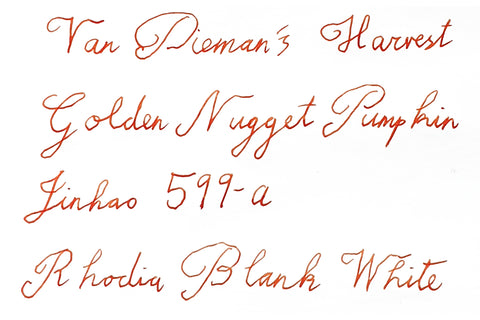 Van Dieman's Harvest
Golden Nugget Pumpkin
Jinhao 599-a
Rhodia Blank White